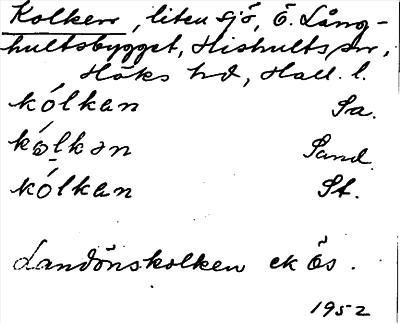 Kolken, liten sjö, Ö. Lång-
hultsbygget, Hishults sn,
Höks hd, Hall. l.
kólkan Sa.
kó̱lkən Sand.
kó̱lkan St.
Landönskolken ek ös.
1952